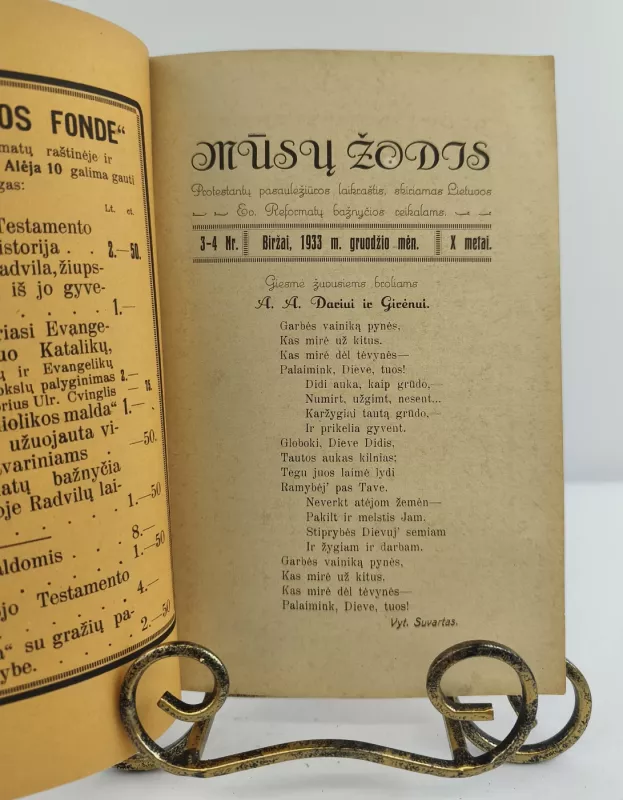 OS FONDE“
matų raštinėje ir
Alėja 10 galima gauti
gas:
Lt. ct.
Testamento
istorija . . 2.—50.
Radvila, žiups-
iš jo gyve-
. . . . . 1.—
riasi Evange-
uo Katalikų,
ų ir Evangelikų
okslų palyginimas 2.—
orius Ulr. Cvinglis —
iolikos malda“ 1.—
užuojauta vi-
tvariniams . —50.
matų bažnyčia
oje Radvilų lai-
. . . . . 1.—50
8.—
aldomis . . . 1.—50
ojo Testamento
. . . . . 4.—
“ su gražių pa-
ybe. . . . . 2.—50
MŪSŲ ŽODIS
Protestantų pasaulėžiūros laikraštis, skiriamas Lietuvos
Ev. Reformatų bažnyčios reikalams.
3-4 Nr. Biržai, 1933 m. gruodžio mėn. X metai.
Giesmė žuvusiems broliams
A. A. Dariui ir Girėnui.
Garbės vainiką pynės,
Kas mirė už kitus.
Kas mirė dėl tėvynės—
Palaimink, Dieve, tuos!
Didi auka, kaip grūdo,—
Numirt, užgimt, nesent...
Karžygiai tautą grūdo,—
Ir prikelia gyvent.
Globoki, Dieve Didis,
Tautos aukas kilnias;
Tegu juos laimė lydi
Ramybėj’ pas Tave.
Neverkt atėjom žemėn—
Pakilt ir melstis Jam.
Stiprybės Dievuj’ semiam
Ir žygiam ir darbam.
Garbės vainiką pynės,
Kas mirė už kitus.
Kas mirė dėl tėvynės—
Palaimink, Dieve, tuos!
Vyt. Suvartas.